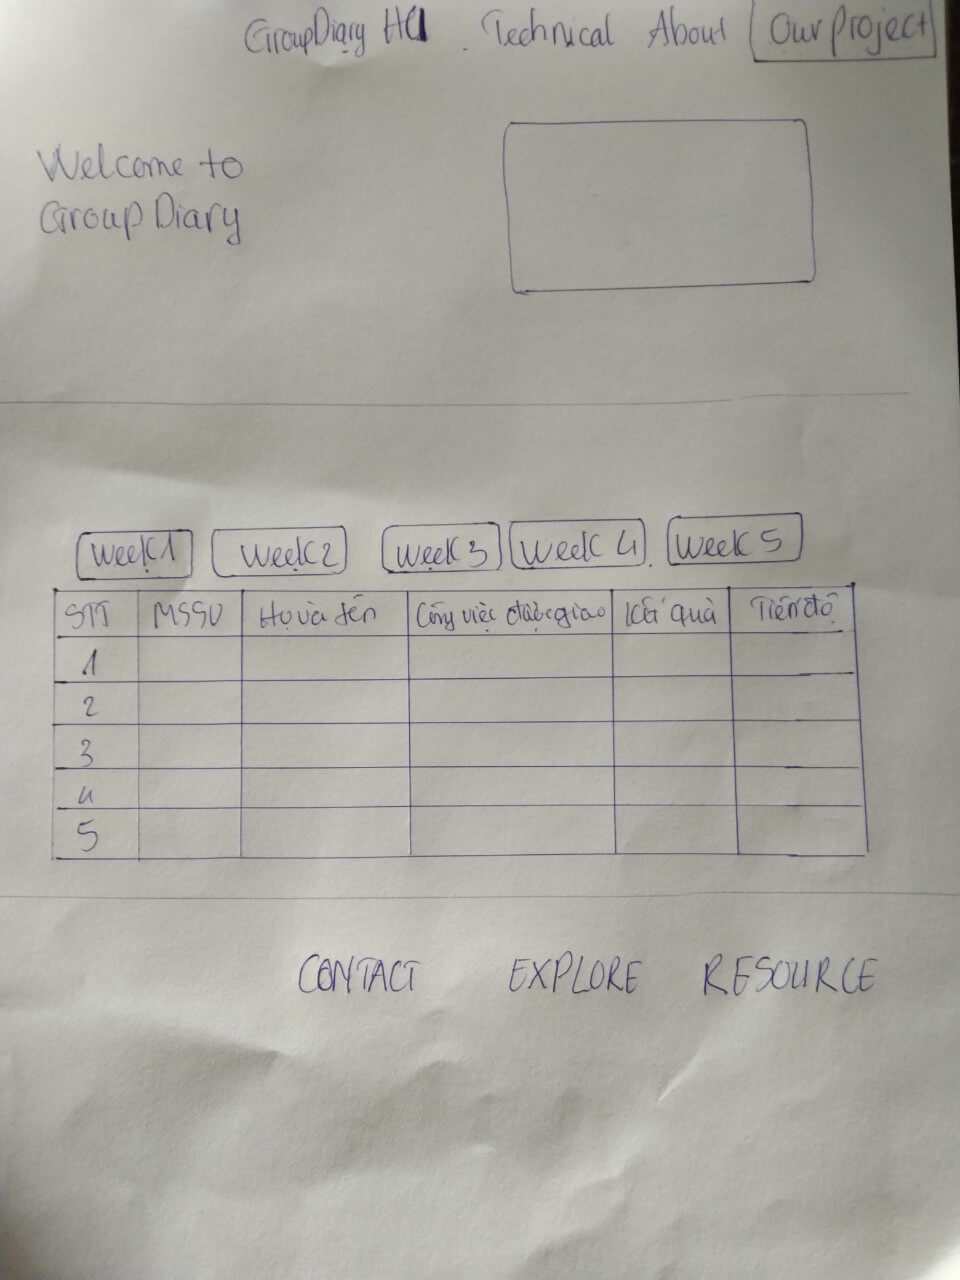 GroupDiary HCI Technical About Our project
Welcome to
Group Diary
Week 1 Week 2 Week 3 Week 4 Week 5
STT MSSV Họ và tên Công việc được giao Kết quả Tiến độ
1
2
3
4
5
CONTACT EXPLORE RESOURCE